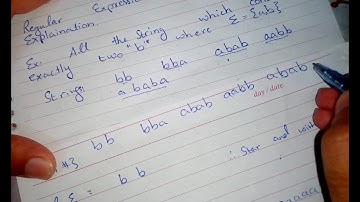 Regular Expressio
Explaination.
Ex: All the String which con
exactly two "b" where Σ = {ab}
String: bb bba abab aabb
ababa
#3 bb bba abab aabb abab
day / date
Σ = b b
∴ Star and with